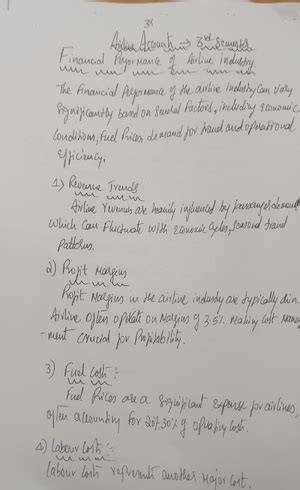 38
Airline Accounts → 3rd Semester
Financial Performance of Airline Industry
The Financial Performance of the airline industry Can Vary
Significantly based on Several Factors, including Economic
Conditions, Fuel Prices demand for travel and operational
Efficiency.
1) Revenue Trends
Airline revenues are heavily influenced by passenger demand
Which Can Fluctuate with Economic Cycles, seasonal travel
Patterns.
2) Profit Margins
Profit Margins in the airline industry are typically
Airline Often operate on Margins of 3.5% Making Cost Manage
-ment Crucial for Profitability.
3) Fuel Cost :-
Fuel Prices are a Significant Expense for airlines,
often accounting for 20%.30% of operating Costs.
4) Labour Costs :-
Labour Costs represents another Major Cost.